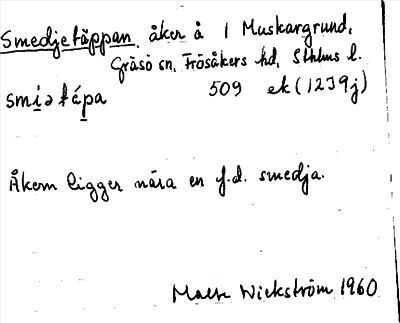 Smedjetäppan, åker å 1 Muskargrund,
Gräsö sn, Frösåkers hd, Sthlms l.
smiətépa 509 ek (12J9j)
Åkern ligger nära en f.d. smedja.
Wickström 1960